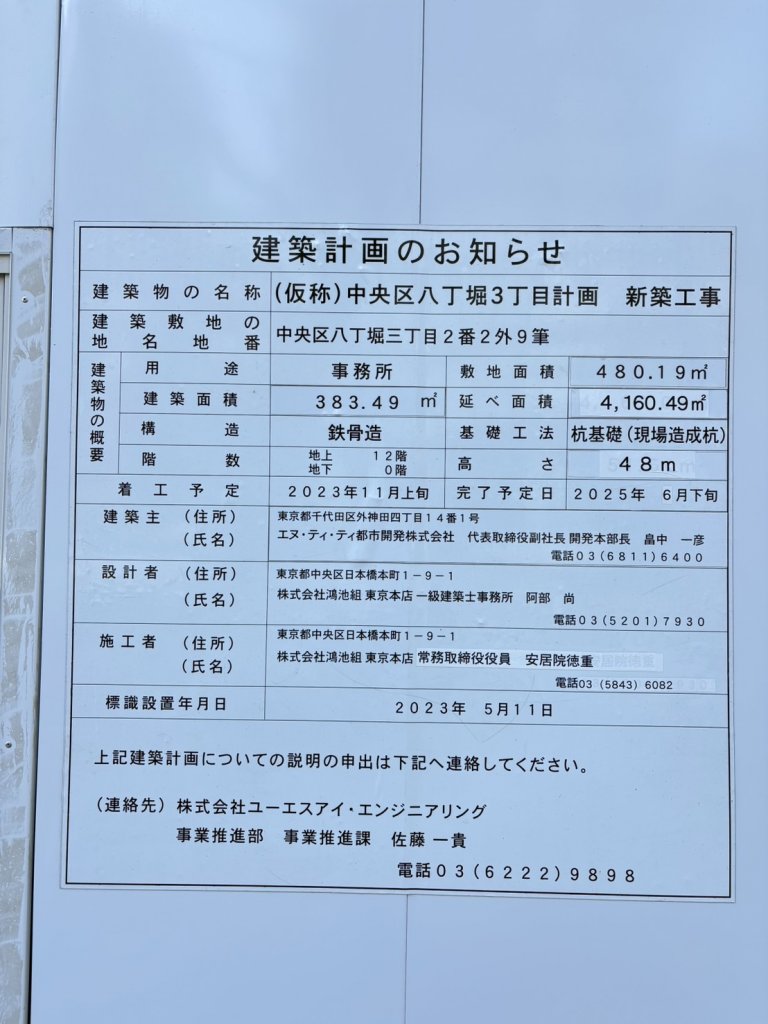 建築計画のお知らせ
建築物の名称 (仮称)中央区八丁堀3丁目計画 新築工事
建築敷地の地名地番 中央区八丁堀三丁目2番2外9筆
建築物の概要
用途 事務所 敷地面積 480.19㎡
建築面積 383.49 ㎡ 延べ面積 4,160.49㎡
構造 鉄骨造 基礎工法 杭基礎(現場造成杭)
階数 地上 12階 地下 0階 高さ 48m
着工予定 2023年11月上旬 完了予定日 2025年 6月下旬
建築主 (住所) 東京都千代田区外神田四丁目14番1号
(氏名) エヌ・ティ・ティ都市開発株式会社 代表取締役副社長 開発本部長 畠中 一彦
電話03(6811)6400
設計者 (住所) 東京都中央区日本橋本町1-9-1
(氏名) 株式会社鴻池組 東京本店 一級建築士事務所 阿部 尚
電話03(5201)7930
施工者 (住所) 東京都中央区日本橋本町1-9-1
(氏名) 株式会社鴻池組 東京本店 常務取締役役員 安居院徳重
電話03 (5843) 6082
標識設置年月日 2023年 5月11日
上記建築計画についての説明の申出は下記へ連絡してください。
(連絡先) 株式会社ユーエスアイ・エンジニアリング
事業推進部 事業推進課 佐藤 一貴
電話03(6222)9898